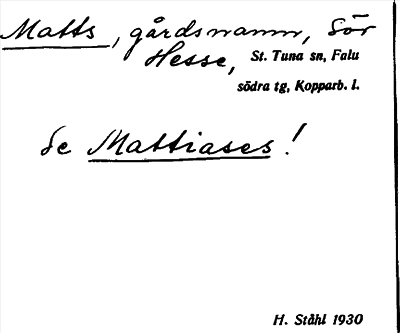 Matts, gårdsnamn, Sör
Hesse, St. Tuna sn, Falu
södra tg, Kopparb. l.
Se Mattiases!
H. Ståhl 1930